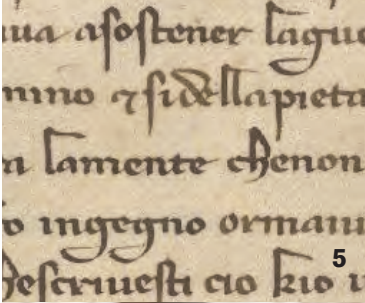 ua asostener lague
mino ⁊ sidellapieta
a lamente chenon
o ingegno ormaiu
hescriuesti cio kio
5